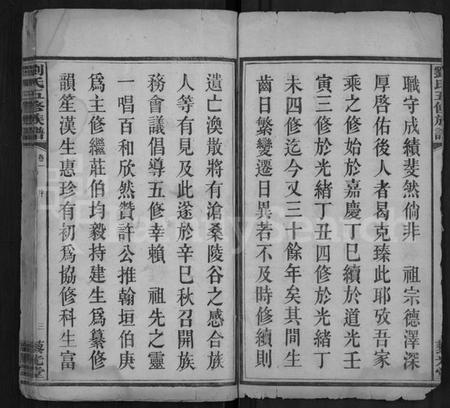 劉氏五修族譜
職守成績斐然倘非 祖宗德澤深
厚啓佑後人者曷克臻此耶攷吾家
乘之修始於嘉慶丁巳續於道光壬
寅三修於光緒丁丑四修於光緒丁
未四修迄今又三十餘年矣其間生
齒日繁變遷日異若不及時修續則
遺亡渙散將有滄桑陵谷之感合族
人等有見及此遂於辛巳秋召開族
務會議倡導五修幸賴 祖先之靈
一唱百和欣然贊許公推翰垣伯庚
爲主修繼莊伯均毅持建生爲纂修
韻笙漢生惠珍有初爲協修科生富
劉氏五修族譜
卷
三
藜光堂